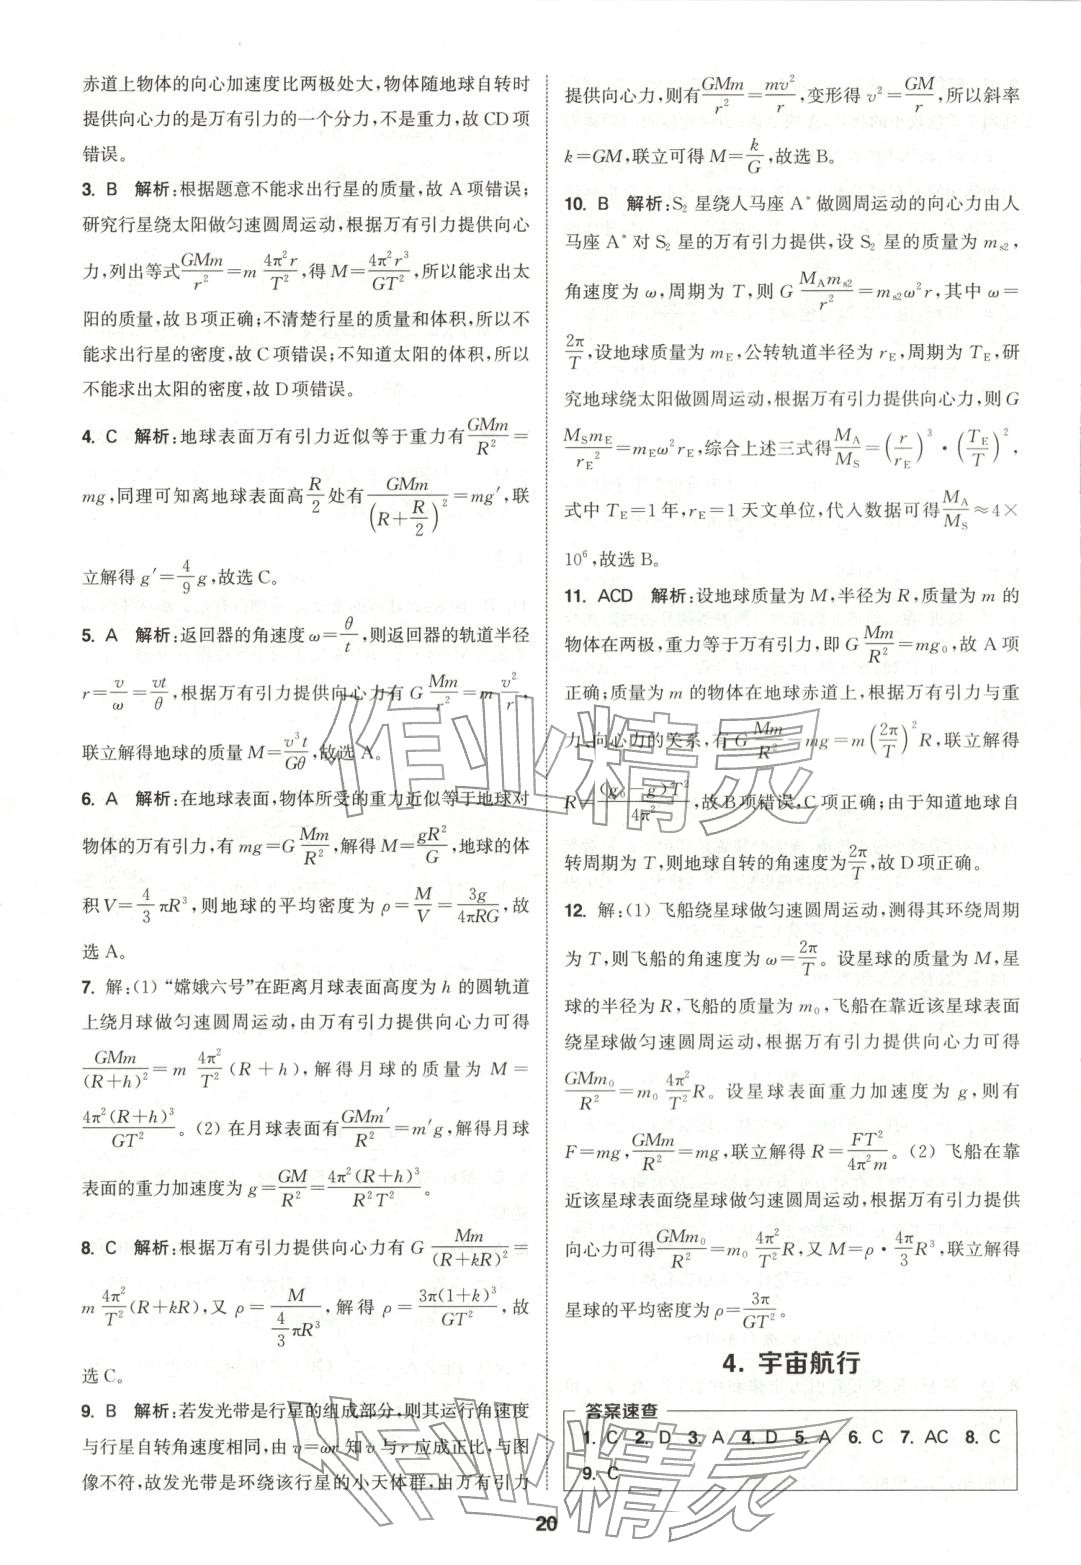 赤道上物体的向心加速度比两极处大,物体随地球自转时
提供向心力的是万有引力的一个分力,不是重力,故 CD 项
错误。
3. B 解析:根据题意不能求出行星的质量,故 A 项错误;
研究行星绕太阳做匀速圆周运动,根据万有引力提供向心
力,列出等式 GMm/r² = m 4π²r/T²,得 M = 4π²r³/GT²,所以能求出太
阳的质量,故 B 项正确;不清楚行星的质量和体积,所以不
能求出行星的密度,故 C 项错误;不知道太阳的体积,所以
不能求出太阳的密度,故 D 项错误。
4. C 解析:地球表面万有引力近似等于重力有 GMm/R² =
mg,同理可知离地球表面高 R/2 处有 GMm/(R+R/2)² = mg′,联
立解得 g′ = 4/9 g,故选 C。
5. A 解析:返回器的角速度 ω = θ/t,则返回器的轨道半径
r = v/ω = vt/θ,根据万有引力提供向心力有 G Mm/r² = m v²/r,
联立解得地球的质量 M = v³t/Gθ,故选 A。
6. A 解析:在地球表面,物体所受的重力近似等于地球对
物体的万有引力,有 mg = G Mm/R²,解得 M = gR²/G,地球的体
积 V = 4/3 πR³,则地球的平均密度为 ρ = M/V = 3g/4πRG,故
选 A。
7. 解:(1) “嫦娥六号”在距离月球表面高度为 h 的圆轨道
上绕月球做匀速圆周运动,由万有引力提供向心力可得
GMm/(R+h)² = m 4π²/T² (R+h),解得月球的质量为 M =
4π²(R+h)³/GT²。(2) 在月球表面有 GMm′/R² = m′g,解得月球
表面的重力加速度为 g = GM/R² = 4π²(R+h)³/R²T²。
8. C 解析:根据万有引力提供向心力有 G Mm/(R+kR)² =
m 4π²/T² (R+kR),又 ρ = M/(4/3 πR³),解得 ρ = 3π(1+k)³/GT²,故
选 C。
9. B 解析:若发光带是行星的组成部分,则其运行角速度
与行星自转角速度相同,由 v=ωr 知 v 与 r 应成正比,与图
像不符,故发光带是环绕该行星的小天体群,由万有引力
提供向心力,则有 GMm/r² = mv²/r,变形得 v² = GM/r,所以斜率
k=GM,联立可得 M = k/G,故选 B。
10. B 解析:S₂ 星绕人马座 A* 做圆周运动的向心力由人
马座 A* 对 S₂ 星的万有引力提供,设 S₂ 星的质量为 mₛ₂,
角速度为 ω,周期为 T,则 G M_A mₛ₂/r² = mₛ₂ω²r,其中 ω =
2π/T,设地球质量为 m_E,公转轨道半径为 r_E,周期为 T_E,研
究地球绕太阳做圆周运动,根据万有引力提供向心力,则 G
M_S m_E/r_E² = m_E ω² r_E,综合上述三式得 M_A/M_S = (r/r_E)³ · (T_E/T)²,
式中 T_E=1 年,r_E=1 天文单位,代入数据可得 M_A/M_S ≈ 4×
10⁶,故选 B。
11. ACD 解析:设地球质量为 M,半径为 R,质量为 m 的
物体在两极,重力等于万有引力,即 G Mm/R² = mg₀,故 A 项
正确;质量为 m 的物体在地球赤道上,根据万有引力与重
力、向心力的关系,有 G Mm/R² − mg = m(2π/T)²R,联立解得
R = (g₀−g)T²/4π²,故 B 项错误,C 项正确;由于知道地球自
转周期为 T,则地球自转的角速度为 2π/T,故 D 项正确。
12. 解:(1) 飞船绕星球做匀速圆周运动,测得其环绕周期
为 T,则飞船的角速度为 ω = 2π/T。设星球的质量为 M,星
球的半径为 R,飞船的质量为 m₀,飞船在靠近该星球表面
绕星球做匀速圆周运动,根据万有引力提供向心力可得
GMm₀/R² = m₀ 4π²/T² R。设星球表面重力加速度为 g,则有
F=mg,GMm/R² = mg,联立解得 R = FT²/4π²m。(2) 飞船在靠
近该星球表面绕星球做匀速圆周运动,根据万有引力提供
向心力可得 GMm₀/R² = m₀ 4π²/T² R,又 M = ρ · 4π/3 R³,联立解得
星球的平均密度为 ρ = 3π/GT²。
4. 宇宙航行
答案速查
1. C 2. D 3. A 4. D 5. A 6. C 7. AC 8. C
9. C
20
作业精灵
作业精灵